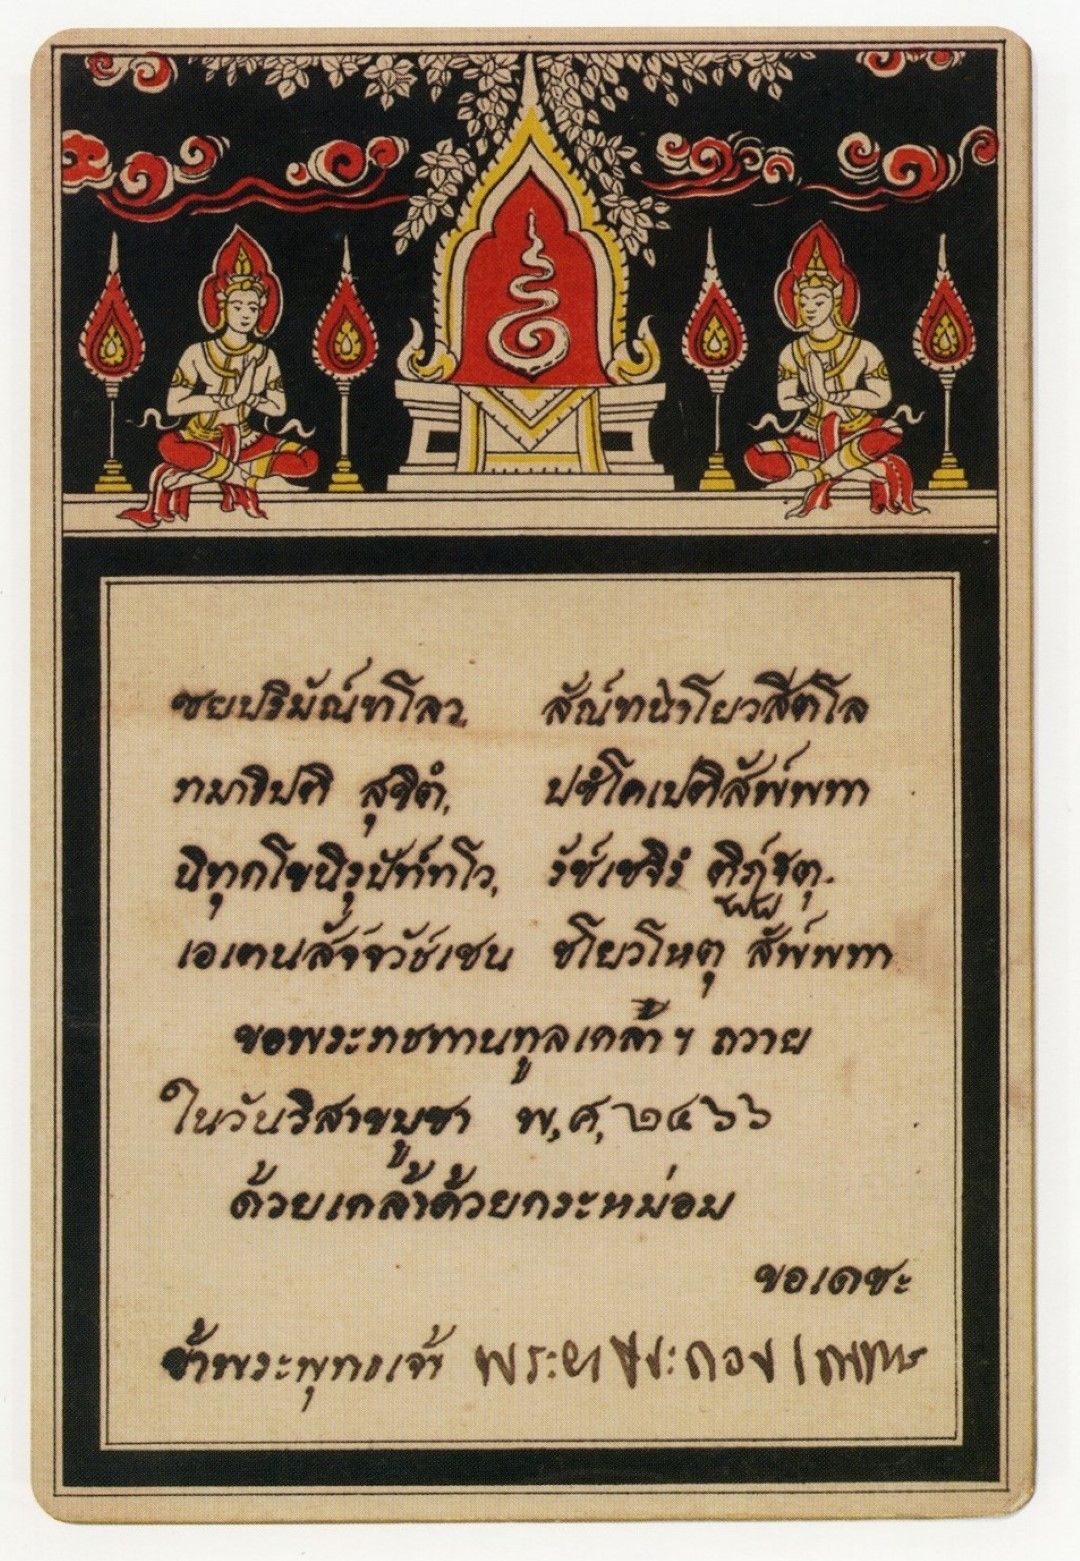 ชยปริมัณ์ฑโลว, โยวสีตโล
สุจิตํ, ปชํโคเปติสัพ์พทา
นิทุกโขนิรุปัท์ทโว, รัช์เชจิรํ ติฏ์ฐตุ.
เอเตนสัจ์จวัช์เชน ชโยวโหตุ สัพ์พทา
ขอพระราชทานทูลเกล้า ฯ ถวาย
ในวันวิสาขบูชา พ,ศ, ๒๔๖๖
ด้วยเกล้าด้วยกระหม่อม
ขอเดชะ
ข้าพระพุทธเจ้า